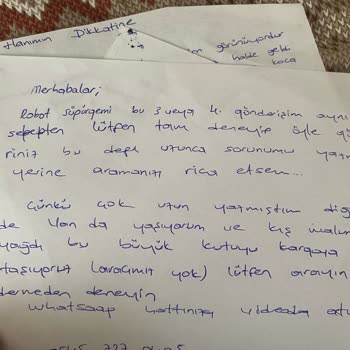 Hanımın Dikkatine
görünüyordur
halde geldi
koca
Merhabalar;
Robot süpürgemi bu 3 veya 4. gönderişim aynı
sebepten lütfen tam deneyip öyle gö
riniz bu defa uzunca sorunumu yazm
yerine aramanızı rica etsem...
Çünkü çok uzun yazmıştım diğ
de Van da yaşıyorum ve kış malum
yağdı bu büyük kutuyu kargoya
taşıyoruz (aracımız yok) lütfen arayın
demeden deneyin
whatsaap hattınıza videoda at